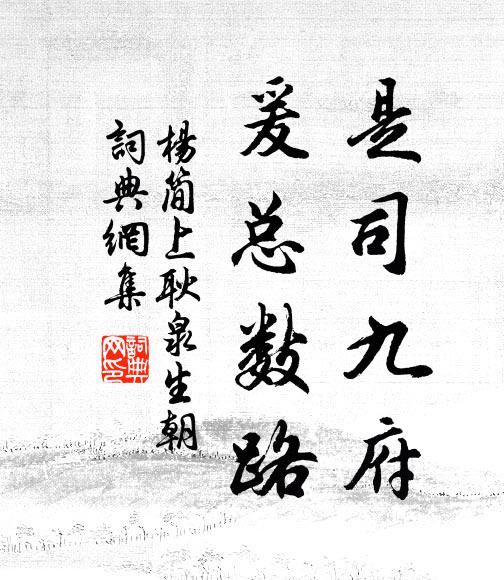 是司九府
爰总数路
杨简上耿泉生朝
词典網集
詞典网印